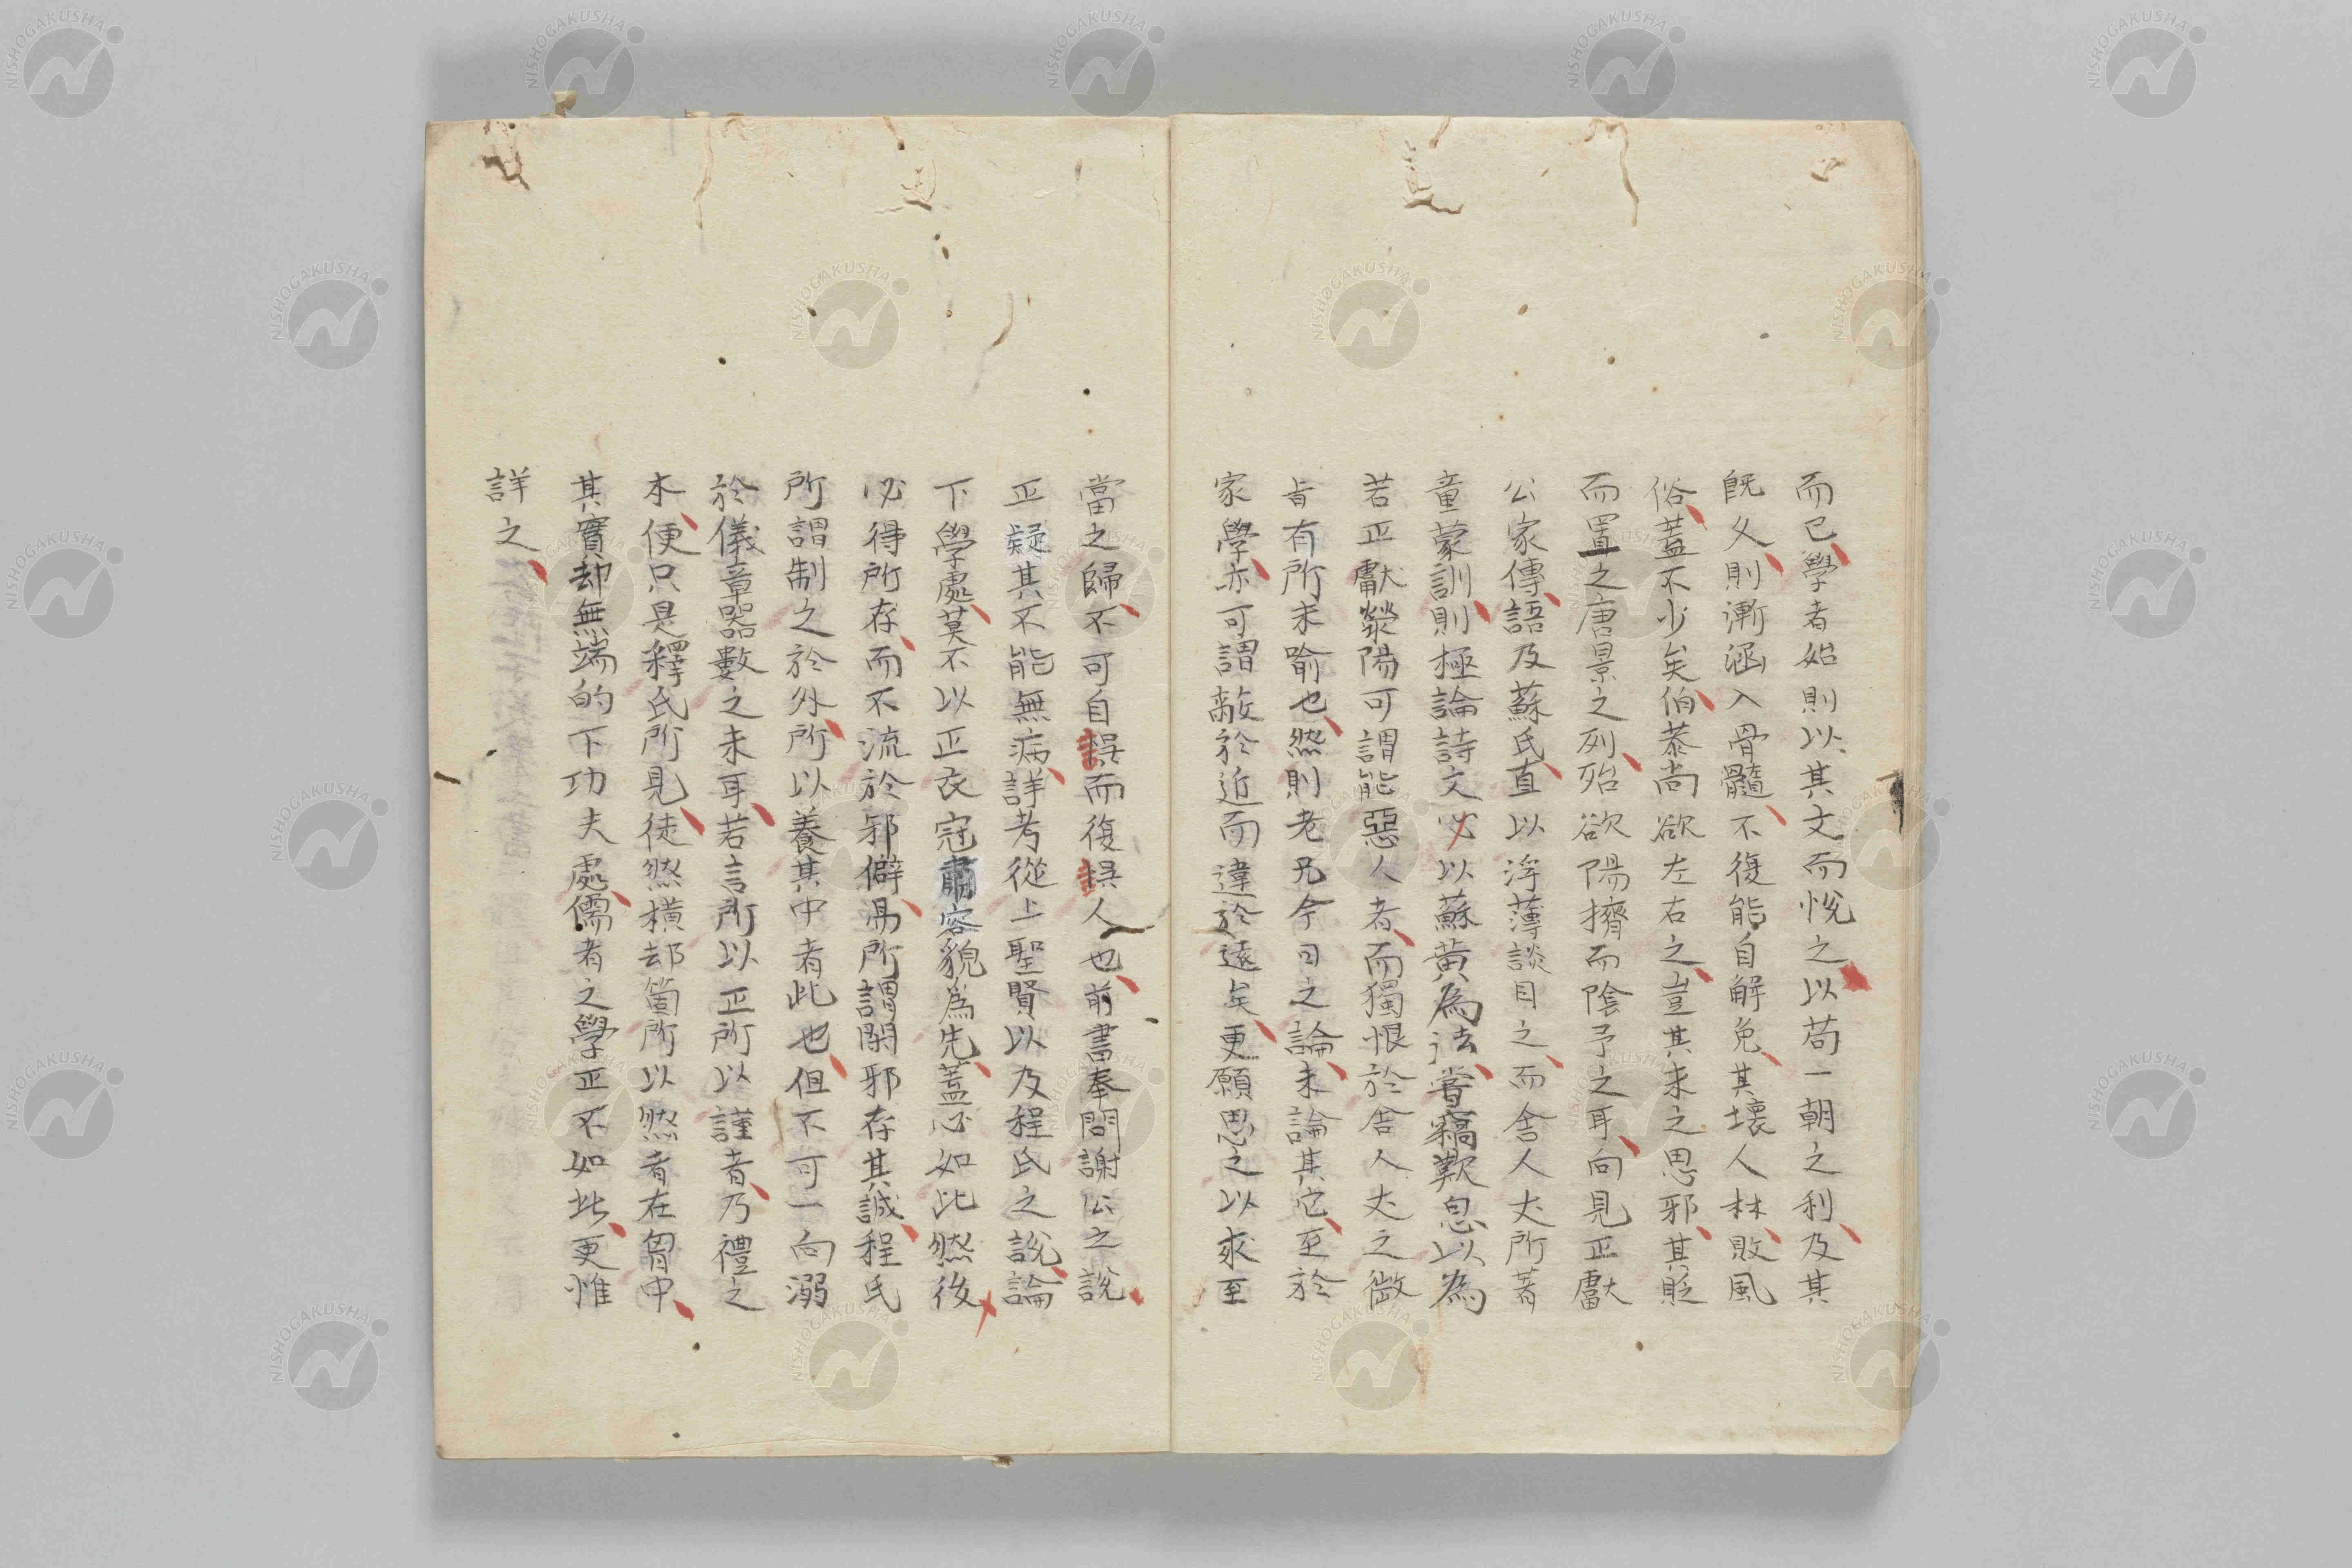 而已學者始則以其文而悅之以苟一朝之利及其
既久則漸涵入骨髓不復能自解免其壞人材敗風
俗蓋不少矣伯恭尚欲左右之豈其未之思邪其貶
而置之唐景之列殆欲陽擠而陰予之耳向見正獻
公家傳語及蘇氏直以浮薄談目之而舍人丈所著
童蒙訓則極論詩文必以蘇黃為法嘗竊歎息以為
若正獻滎陽可謂能惡人者而獨恨於舍人丈之微
旨有所未喻也然則老兄今日之論未論其它至於
家學亦可謂蔽於近而違於遠矣更願思之以求至
當之歸不可自誤而復誤人也前書奉問謝公之說
正疑其不能無病詳考從上聖賢以及程氏之說論
下學處莫不以正衣冠肅容貌為先蓋必如此然後
心得所存而不流於邪僻易所謂閑邪存其誠程氏
所謂制之於外所以養其中者此也但不可一向溺
於儀章器數之末耳若言所以正所以謹者乃禮之
本便只是釋氏所見徒然橫却箇所以然者在胷中
其實却無端的下功夫處儒者之學正不如此更惟
詳之
NISHOGAKUSHA